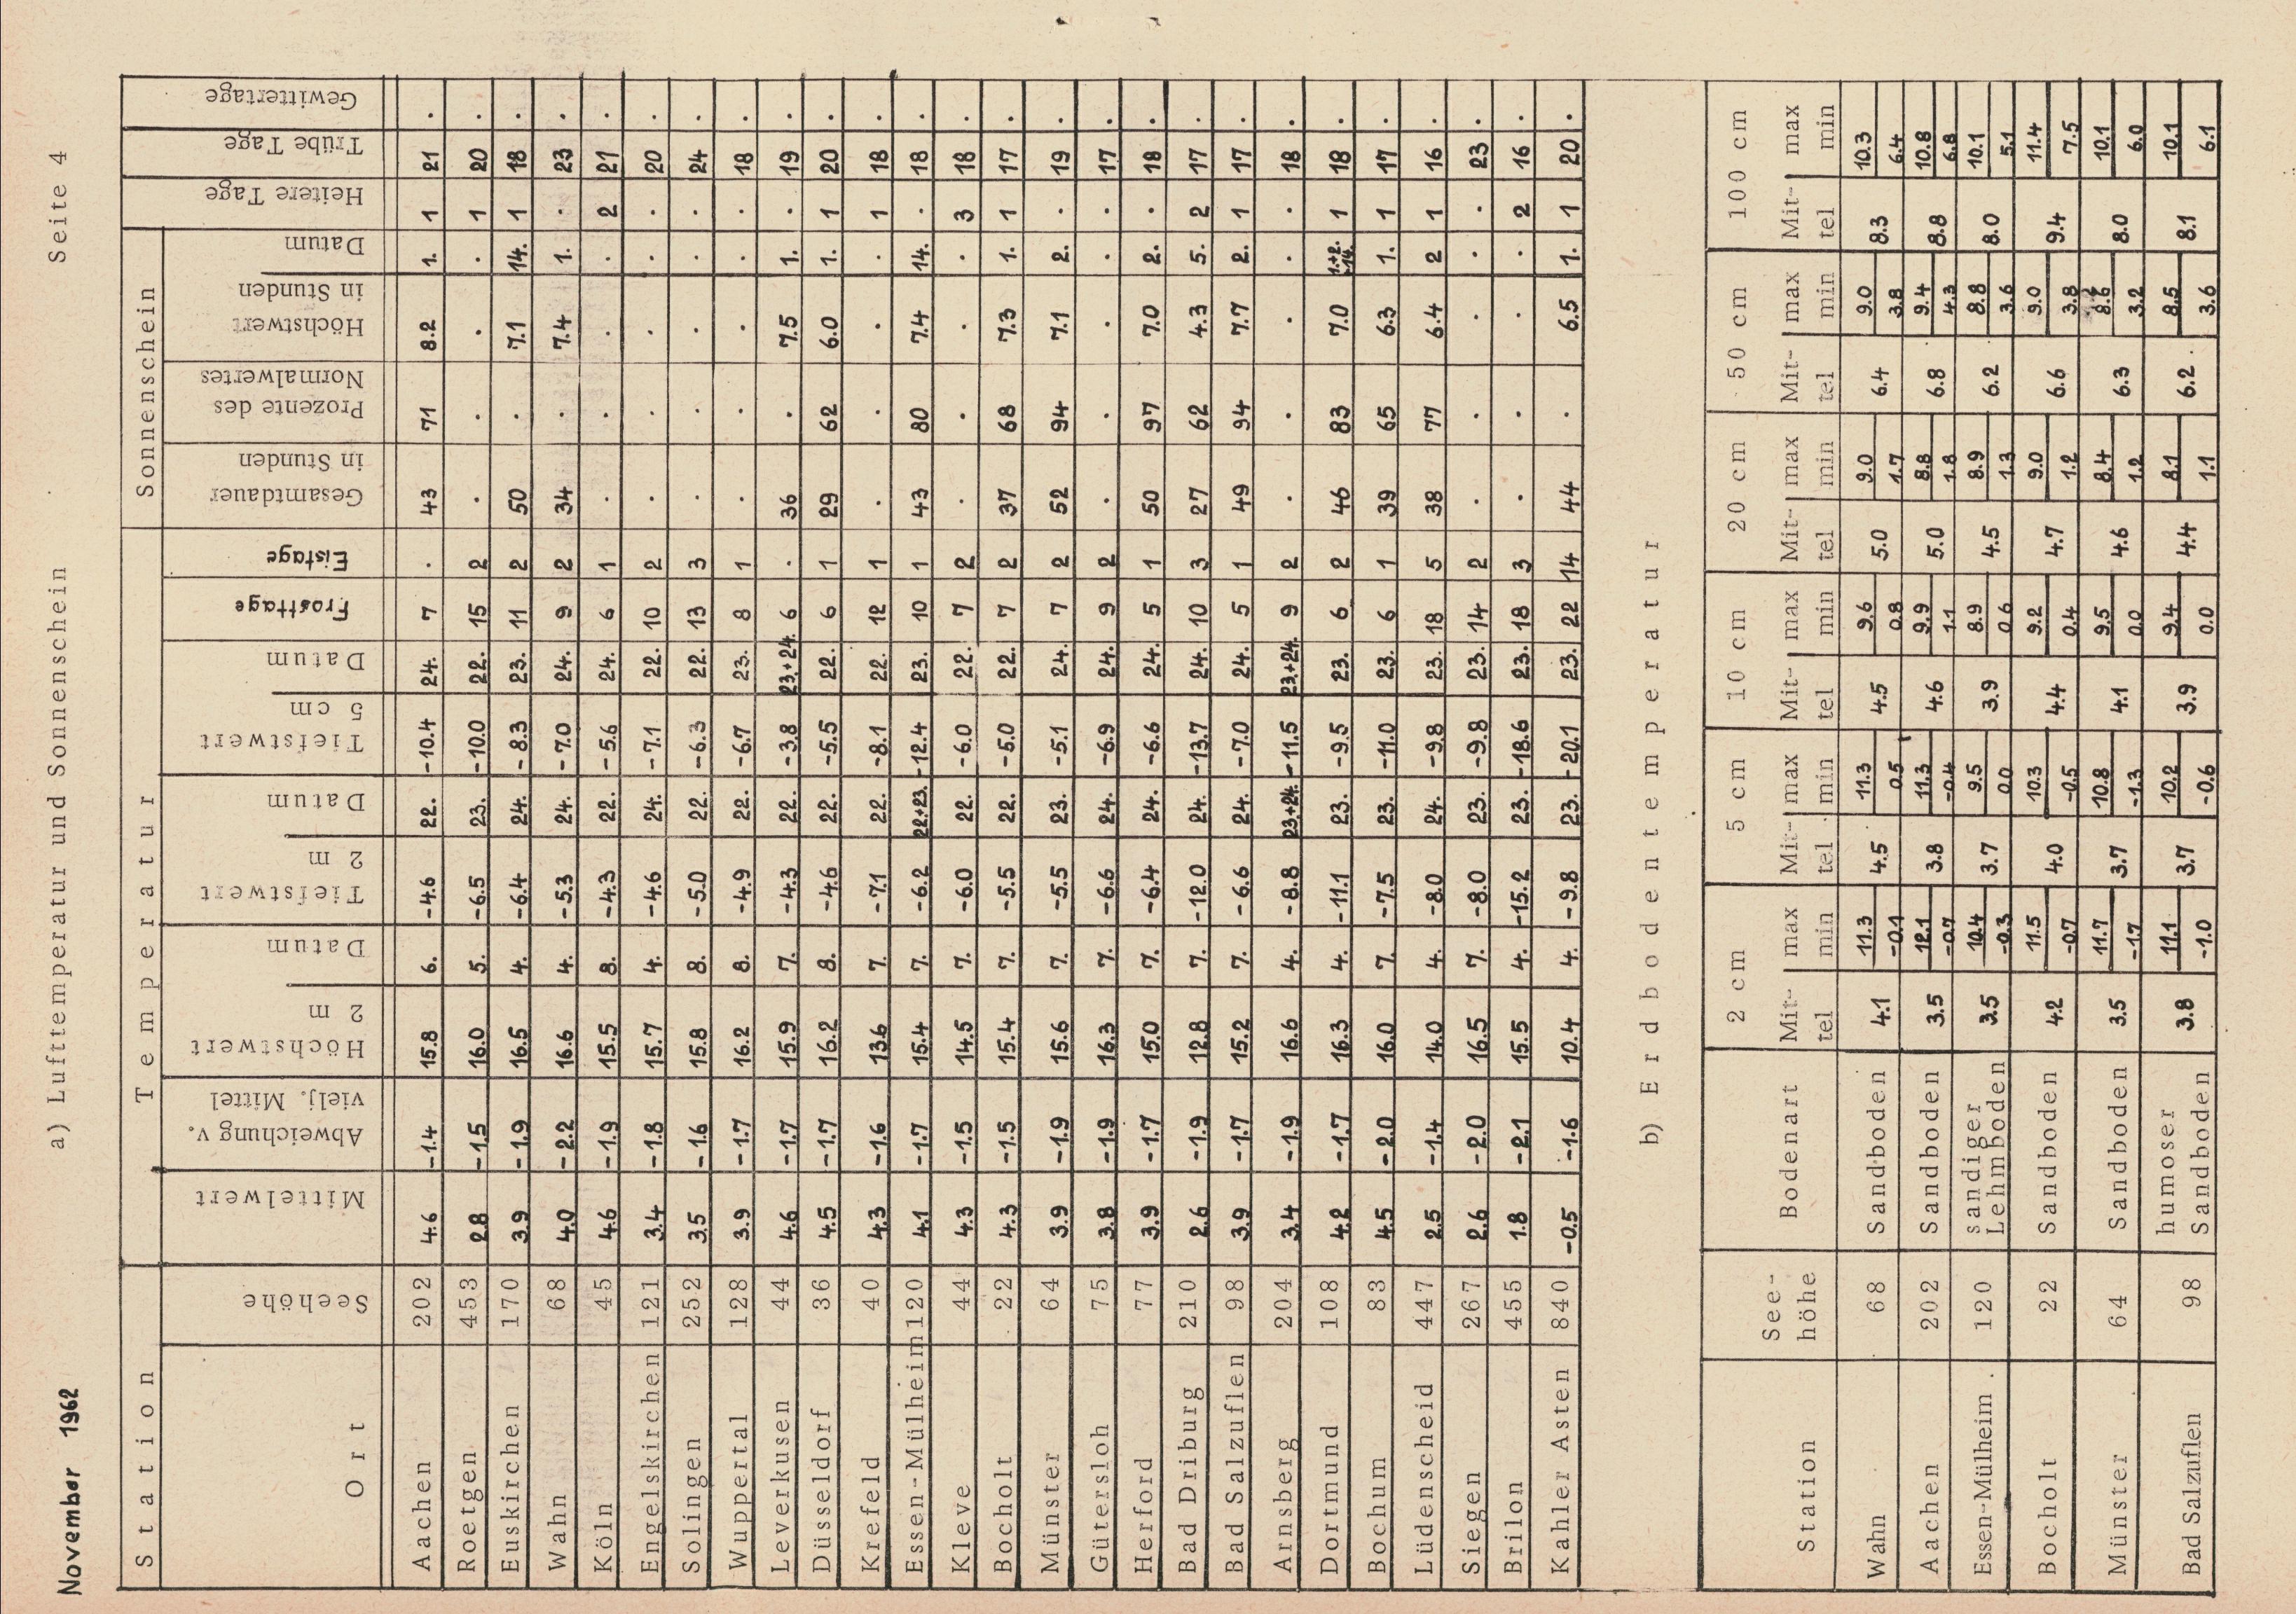 November 1962
a) Lufttemperatur und Sonnenschein
Seite 4
Station Temperatur Sonnenschein
Ort Seehöhe Mittelwert Abweichung v. vielj. Mittel Höchstwert 2 m Datum Tiefstwert 2 m Datum Tiefstwert 5 cm Datum Frosttage Eistage Gesamtdauer in Stunden Prozente des Normalwertes Höchstwert in Stunden Datum Heitere Tage Trübe Tage Gewittertage
Aachen 202 4.6 -1.4 15.8 6. -4.6 22. -10.4 24. 7 . 43 71 8.2 1. 1 21 .
Roetgen 453 2.8 -1.5 16.0 5. -6.5 23. -10.0 22. 15 2 . . . . 1 20 .
Euskirchen 170 3.9 -1.9 16.5 4. -6.4 24. -8.3 23. 11 2 50 . 7.1 14. 1 18 .
Wahn 68 4.0 -2.2 16.6 4. -5.3 24. -7.0 24. 9 2 34 . 7.4 1. . 23 .
Köln 45 4.6 -1.9 15.5 8. -4.3 22. -5.6 24. 6 1 . . . . 2 21 .
Engelskirchen 121 3.4 -1.8 15.7 4. -4.6 24. -7.1 22. 10 2 . . . . . 20 .
Solingen 252 3.5 -1.6 15.8 8. -5.0 22. -6.3 22. 13 3 . . . . . 24 .
Wuppertal 128 3.9 -1.7 16.2 8. -4.9 22. -6.7 23. 8 1 . . . . . 18 .
Leverkusen 44 4.6 -1.7 15.9 7. -4.3 22. -3.8 23.+24. 6 . 36 . 7.5 1. . 19 .
Düsseldorf 36 4.5 -1.7 16.2 8. -4.6 22. -5.5 22. 6 1 29 62 6.0 1. 1 20 .
Krefeld 40 4.3 -1.6 13.6 7. -7.1 22. -8.1 22. 12 1 . . . . 1 18 .
Essen-Mülheim 120 4.1 -1.7 15.4 7. -6.2 22.+23. -12.4 23. 10 1 43 80 7.4 14. . 18 .
Kleve 44 4.3 -1.5 14.5 7. -6.0 22. -6.0 22. 7 2 . . . . 3 18 .
Bocholt 22 4.3 -1.5 15.4 7. -5.5 22. -5.0 22. 7 2 37 68 7.3 1. 1 17 .
Münster 64 3.9 -1.9 15.6 7. -5.5 23. -5.1 24. 7 2 52 94 7.1 2. . 19 .
Gütersloh 75 3.8 -1.9 16.3 7. -6.6 24. -6.9 24. 9 2 . . . . . 17 .
Herford 77 3.9 -1.7 15.0 7. -6.4 24. -6.6 24. 5 1 50 97 7.0 2. . 18 .
Bad Driburg 210 2.6 -1.9 12.8 7. -12.0 24. -13.7 24. 10 3 27 62 4.3 5. 2 17 .
Bad Salzuflen 98 3.9 -1.7 15.2 7. -6.6 24. -7.0 24. 5 1 49 94 7.7 2. 1 17 .
Arnsberg 204 3.4 -1.9 16.6 4. -8.8 23.+24. -11.5 23.+24. 9 2 . . . . . 18 .
Dortmund 108 4.2 -1.7 16.3 4. -11.1 23. -9.5 23. 6 2 46 83 7.0 1.+2. 14. 1 18 .
Bochum 83 4.5 -2.0 16.0 7. -7.5 23. -11.0 23. 6 1 39 65 6.3 1. 1 17 .
Lüdenscheid 447 2.5 -1.4 14.0 4. -8.0 24. -9.8 23. 18 5 38 77 6.4 2 1 16 .
Siegen 267 2.6 -2.0 16.5 7. -8.0 23. -9.8 23. 14 2 . . . . . 23 .
Brilon 455 1.8 -2.1 15.5 4. -15.2 23. -18.6 23. 18 3 . . . . 2 16 .
Kahler Asten 840 -0.5 -1.6 10.4 4. -9.8 23. -20.1 23. 22 14 44 . 6.5 1. 1 20 .
b) Erdbodentemperatur
2 cm 5 cm 10 cm 20 cm 50 cm 100 cm
Station See-höhe Bodenart Mit-tel max min Mit-tel max min Mit-tel max min Mit-tel max min Mit-tel max min Mit-tel max min
Wahn 68 Sandboden 4.1 11.3 -0.1 4.5 11.3 0.5 4.5 9.6 0.8 5.0 9.0 1.7 6.4 9.0 3.8 8.3 10.3 6.4
Aachen 202 Sandboden 3.5 12.1 -0.7 3.8 11.3 -0.4 4.6 9.9 1.1 5.0 8.8 1.8 6.8 9.4 4.3 8.8 10.8 6.8
Essen-Mülheim 120 sandiger Lehmboden 3.5 10.4 -0.3 3.7 9.5 0.0 3.9 8.9 0.6 4.5 8.9 1.3 6.2 8.8 3.6 8.0 10.1 5.1
Bocholt 22 Sandboden 4.2 11.5 -0.7 4.0 10.3 -0.5 4.4 9.2 0.4 4.7 9.0 1.2 6.6 9.0 3.8 9.4 11.4 7.5
Münster 64 Sandboden 3.5 11.7 -1.7 3.7 10.8 -1.3 4.1 9.5 0.0 4.6 8.4 1.2 6.3 8.6 3.2 8.0 10.1 6.0
Bad Salzuflen 98 humoser Sandboden 3.8 11.1 -1.0 3.7 10.2 -0.6 3.9 9.4 0.0 4.4 8.1 1.1 6.2 8.5 3.6 8.1 10.1 6.1